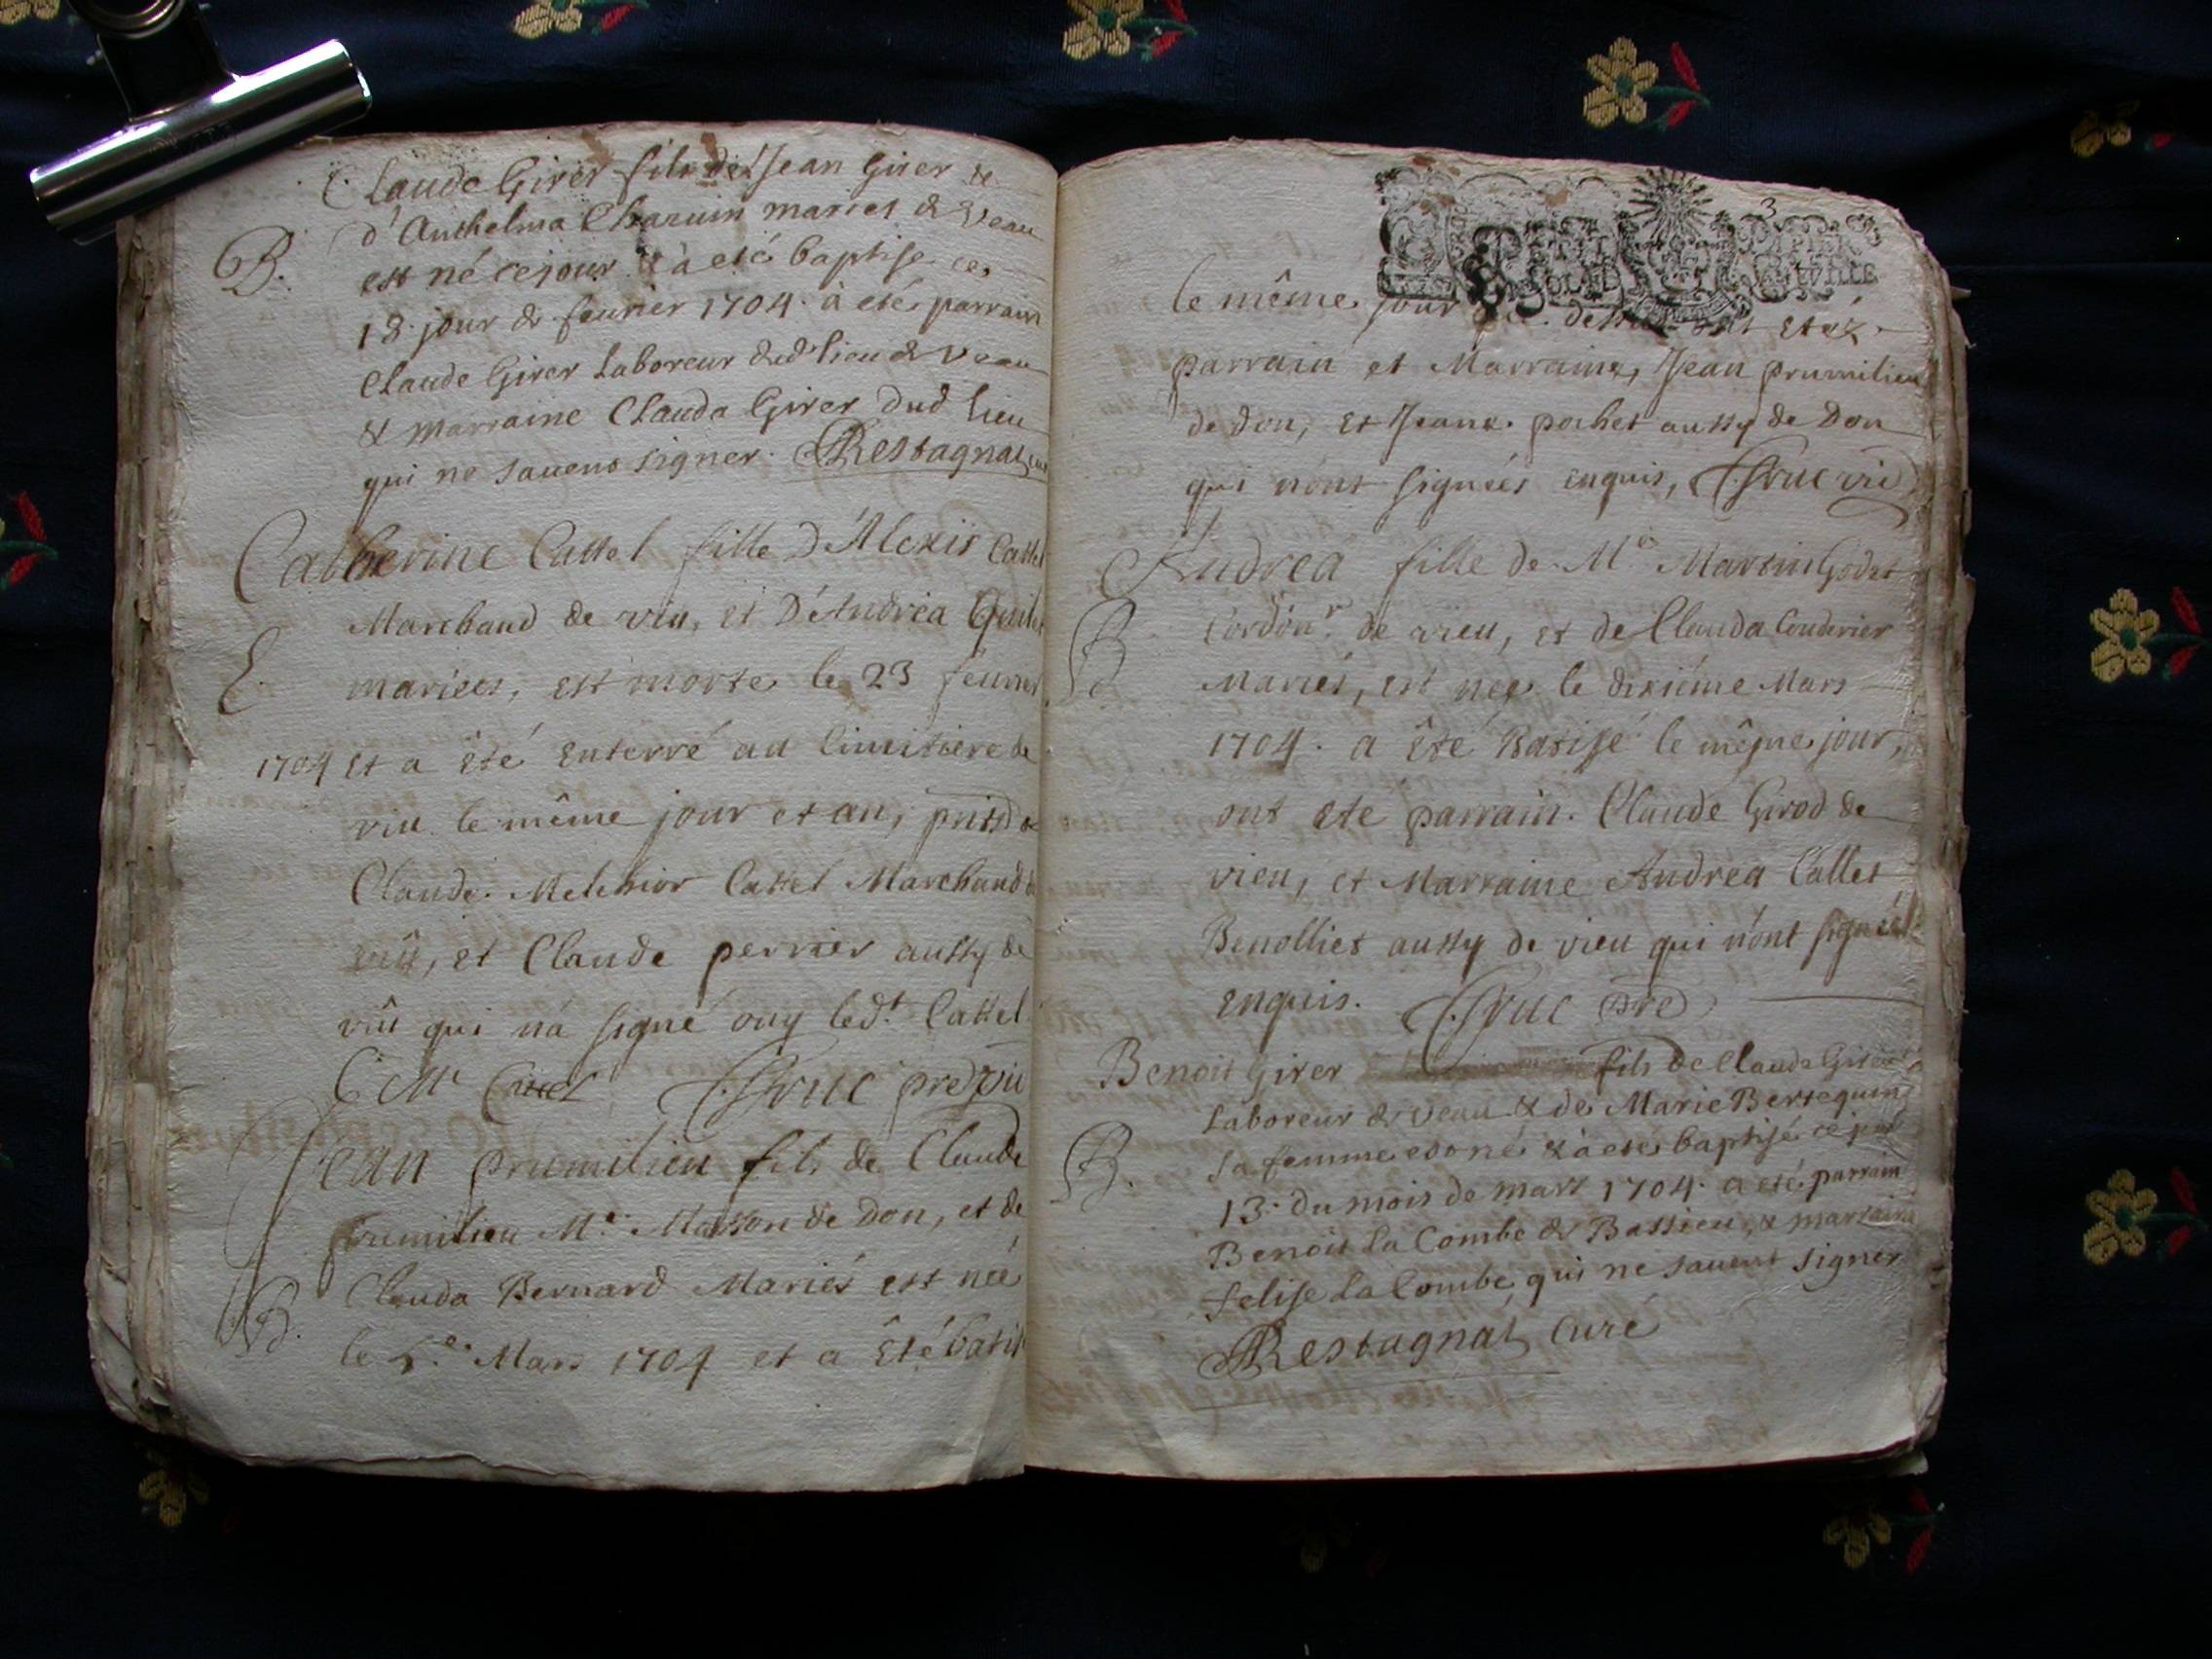 Claude Girer fils de Jean Girer &
d'Anthelma Charuin mariés de Veau
B.
est né ce jour & à eté baptisé ce
18. jour de feurier 1704. à eté parrain
Claude Girer Laboreur dud lieu de Veau
& marraine Clauda Girer dud lieu
qui ne sauens signer. Restagnat
Catherine Cattel fille D'Alexis Cattel
Marchand de viu, et D'Andréa
E.
mariees, est morte le 23 feurier
1704 et a êté enterré au Cimitiere de
viu le même jour et an,
Claude Melchior Cattel Marchand
viû, et Claude perrier aussy de
viû qui na signé ouy led.t Cattel
C M Cattel
Jean prumilieu fils de Claude
prumilieu M.e Masson de Don, et de
Clauda Bernard Mariés est née
B.
le 5.e Mars 1704 et a êté batisé
3
PETIT PAPIER
le même jour ont etéz
parrain et Marraine, Jean prumilieu
de Don, et Jeane pochet aussy de Don
qui nont signées enquis,
Andrea fille de M.e Martin Godet
B.
Cordon.r de vieu, et de Clauda Couderier
Mariés, est neé le dixiéme Mars
1704. a êté Batisé le même jour,
ont ete parrain. Claude Girod de
vieu, et Marraine Andrea Callet
Benollier aussy de vieu qui nont signés
enquis.
Benoit Girer fils de Claude Girer
Laboreur de Veau & de Marie Bertequin
B.
sa femme & à eté baptisé ce jour
13. du mois de mars 1704. a eté parrain
Benoit La Combe de Bassieu, & marraine
felise La Combe, qui ne sauent signer
Restagnat Curé